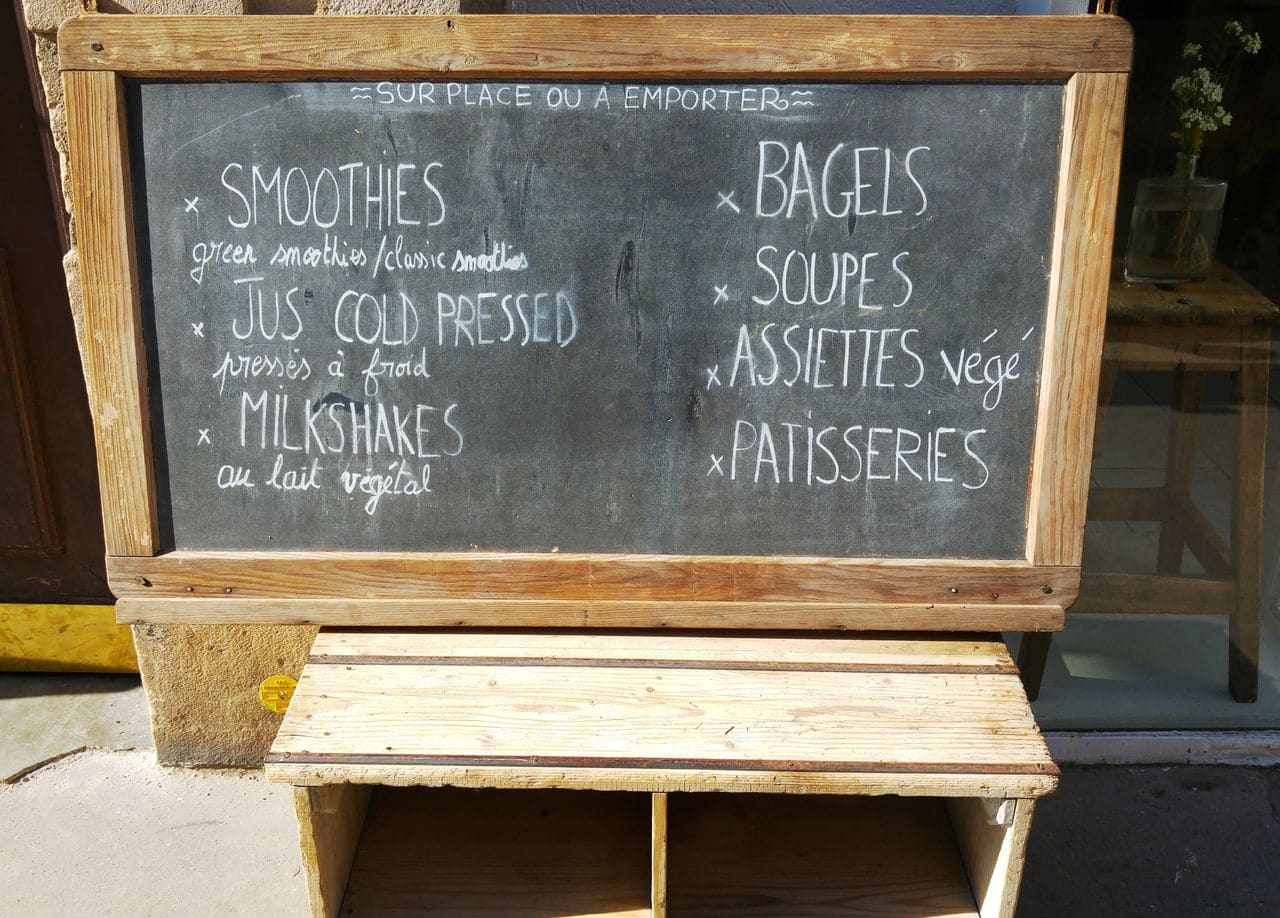 ≈SUR PLACE OU A EMPORTER≈
x SMOOTHIES
green smoothies/classic smoothies
x JUS COLD PRESSED
pressés à froid
x MILKSHAKES
au lait végétal
x BAGELS
x SOUPES
x ASSIETTES végé
x PATISSERIES